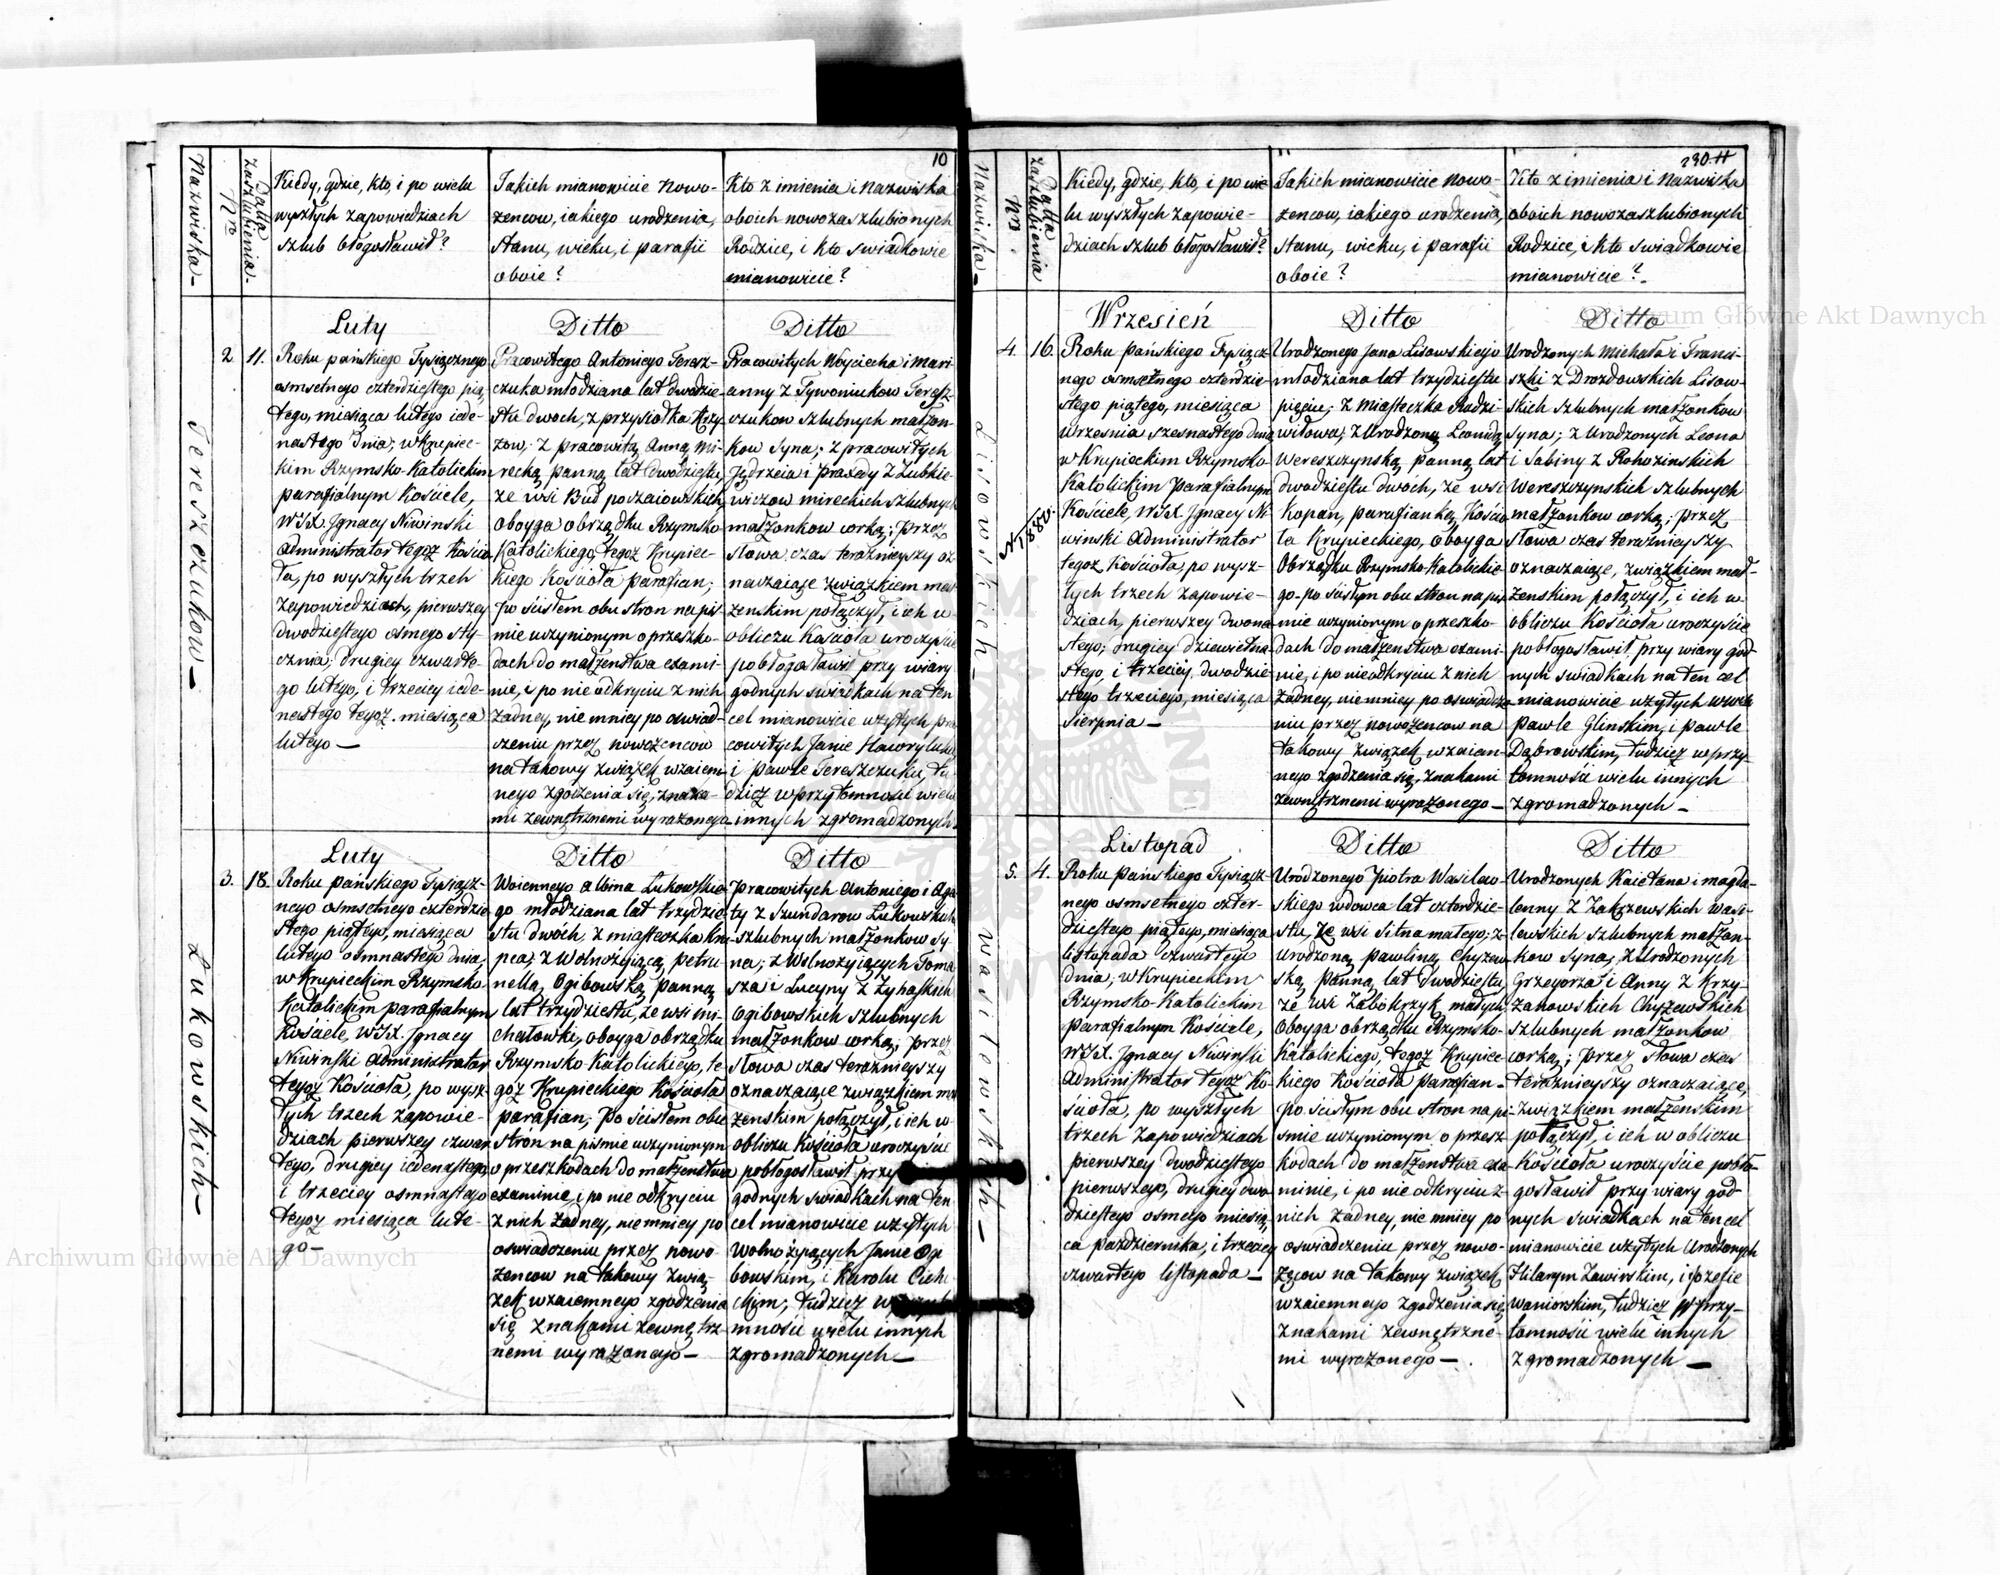 10
Nazwiska –
Nro
Datta zaszlubienia.
Kiedy, gdzie, kto, i po wielu
wyszłych zapowiedziach
szlub błogosławił?
Jakich mianowicie nowo-
żencow, iakiego urodzenia,
stanu, wieku, i parafii
oboie?
Kto z imienia i nazwiska
oboich nowozaszlubionych
Rodzice, i kto swiadkowie
mianowicie?
Tereszczukow –
2
11.
Luty
Roku pańskiego Tysiącznego
osmsetnego czterdziestego pią-
tego, miesiąca lutego iede-
nastego dnia; w Krupiec-
kim Rzymsko-Katolickim
parafialnym Kościele,
WJX. Ignacy Niwinski
administrator tegoż Kościo-
ła, po wyszłych trzech
zapowiedziach, pierwszey
dwodziestego osmego sty-
cznia; drugiey czwarte-
go lutego, i trzeciey iede-
nastego tegoż miesiąca
lutego –
Ditto
Pracowitego Antoniego Teresz-
czuka młodziana lat dwodzie-
stu dwoch, z przysiołka Kry-
zow; z pracowitą Anną Mi-
recką panną lat dwodziestu,
ze wsi Bud poczaiowskich,
oboyga obrządku Rzymsko
Katolickiego, tegoż Krupiec-
kiego Kościoła parafian;
po scisłem obu stron na piś-
mie uczynionym o przeszko-
dach do małżenstwa exami-
nie, i po nie odkryciu z nich
żadney, nie mniey po oswiad-
czeniu przez nowożencow
na takowy związek wzaiem-
nego zgodzenia się, znaka-
mi zewnętrznemi wyrażonego –
Ditto
Pracowitych Woyciecha i Mari-
anny z Tywoniukow Teresz-
czukow szlubnych małżon-
kow syna; z pracowitych
Jędrzeia i Praxedy z Lubkie-
wiczow Mireckich szlubnych
małżonkow corką; przez
słowa czas teraznieyszy oz-
naczaiące związkiem mał-
żenskim połączył, i ich w
obliczu Kościoła uroczyście
pobłogosławił przy wiary
godnych swiadkach na ten
cel mianowicie użytych pra-
cowitych Janie Hawryluku
i Pawle Tereszczuku, tu-
dzież w przytomnosci wielu
innych zgromadzonych.
Łukowskich –
3.
18.
Luty
Roku pańskiego Tysiącz-
nego osmsetnego czterdzie-
stego piątego, miesiąca
lutego osmnastego dnia,
w Krupieckim Rzymsko-
Katolickim parafialnym
Kościele, WJX. Ignacy
Niwinski administrator
tegoż Kościoła, po wysz-
łych trzech zapowie-
dziach pierwszey czwar-
tego, drugiey iedenastego
i trzeciey osmnastego
tegoż miesiąca lute-
go –
Ditto
Woiennego Albina Łukowskie-
go młodziana lat trzydzie-
stu dwóch z miasteczka Kru-
pca; z Wolnożyiącą Petru-
nellą Ogibowską panną
lat trzydziestu, ze wsi Mi-
chałowki, oboyga obrządku
Rzymsko Katolickiego, te-
goż Krupieckiego Kościoła
parafian; Po scisłem obu
stron na piśmie uczynionym
o przeszkodach do małżenstwa
examinie, i po nie odkryciu
z nich żadney, nie mniey po
oswiadczeniu przez nowo-
żencow na takowy zwią-
zek wzaiemnego zgodzenia
się znakami zewnętrz-
nemi wyrażonego –
Ditto
Pracowitych Antoniego i Aga-
ty z Szundarow Łukowskich
szlubnych małżonkow sy-
na; z Wolnożyiących Toma-
sza i Lucyny z Łyhaskich
Ogibowskich szlubnych
małżonkow corką; przez
słowa czas teraznieyszy
oznaczaiące związkiem mał-
żenskim połączył, i ich w
obliczu Kościoła uroczyście
pobłogosławił przy
godnych swiadkach na ten
cel mianowicie użytych
Wolno żyiących Janie Ogi-
bowskim, i Karolu Cich-
ckim, tudzież w
mnosci wielu innych
zgromadzonych –
230. 11
Nazwiska –
Nro
Datta zaszlubienia
Kiedy, gdzie, kto, i po wie-
lu wyszłych zapowie-
dziach szlub błogosławił?
Jakich mianowicie nowo-
żencow, iakiego urodzenia,
stanu, wieku, i parafii
oboie?
Kto z imienia i nazwiska
oboich nowozaszlubionych
Rodzice, i kto swiadkowie
mianowicie? –
Lisowskich –
4.
16.
Wrzesień
Roku Pańskiego Tysiącz-
nego osmsetnego czterdzie-
stego piątego, miesiąca
września szesnastego dnia
w Krupieckim Rzymsko
Katolickim parafialnym
Kościele, WJX. Ignacy Ni-
winski administrator
tegoż Kościoła, po wysz-
łych trzech zapowie-
dziach, pierwszey dwona-
stego, drugiey dziewietna-
stego, i trzeciey dwodzie-
stego trzeciego, miesiąca
sierpnia –
Ditto
Urodzonego Jana Lisowskiego
młodziana lat trzydziestu
pięciu; z miasteczka Radzi-
wiłowa; z Urodzoną Leonidą
Wereszczynską panną lat
dwodziestu dwoch, ze wsi
Kopań, parafianką Kościo-
ła Krupieckiego, oboyga
Obrządku Rzymsko-Katolickie-
go – po scisłym obu stron na piś-
mie uczynionym o przeszko-
dach do małżenstwa exami-
nie, i po nieodkryciu z nich
żadney, nie mniey po oswiadcze-
niu przez nowożencow na
takowy związek wzaiem-
nego zgodzenia się, znakami
zewnętrznemi wyrażonego –
Ditto
Urodzonych Michała i Franci-
szki z Drozdowskich Lisow-
skich szlubnych małżonkow
syna; z Urodzonych Leona
i Sabiny z Rohozinskich
Wereszczynskich szlubnych
małżonkow corką; przez
słowa czas teraznieyszy
oznaczaiące, związkiem mał-
żenskim połączył, i ich w
obliczu Kościoła uroczyście
pobłogosławił przy wiary god-
nych swiadkach na ten cel
mianowicie użytych
Pawle Glinskim, i Pawle
Dąbrowskim, tudzież w przy-
tomności wielu innych
zgromadzonych –
Wasilewskich –
5.
4.
Listopad
Roku Pańskiego Tysiącz-
nego osmsetnego czter-
dziestego piątego, miesiąca
listopada czwartego
dnia; w Krupieckim
Rzymsko-Katolickim
parafialnym Kościele,
WJX. Ignacy Niwinski
Administrator tegoż Ko-
ścioła, po wyszłych
trzech zapowiedziach
pierwszey dwodziestego
pierwszego, drugiey dwo-
dziestego osmego miesią-
ca października, i trzeciey
czwartego listopada –
Ditto
Urodzonego Piotra Wasilew-
skiego wdowca lat czterdzie-
stu, ze wsi Sitna małego; z
Urodzoną Pawliną Chyżew-
ską, Panną lat dwodziestu,
ze wsi Zabokrzyk małych,
oboyga obrządku Rzymsko-
Katolickiego, tegoż Krupiec-
kiego Kościoła parafian –
po scisłym obu stron na pi-
smie uczynionym o przesz-
kodach do małżenstwa exa-
minie, i po nie odkryciu z
nich żadney, nie mniey po
oswiadczeniu przez nowo-
żęcow na takowy związek
wzaiemnego zgodzenia się
znakami zewnętrzne-
mi wyrażonego –
Ditto
Urodzonych Kaietana i Magda-
lenny z Zakrzewskich Wasi-
lewskich szlubnych małżon-
kow syna, z Urodzonych
Grzegorza i Anny z Krzy-
żanowskich Chyżewskich
szlubnych małżonkow
corką; przez słowa czas
teraznieyszy oznaczaiące,
związkiem małżenskim
połączył, i ich w obliczu
Kościoła uroczyście pobło-
gosławił przy wiary god-
nych swiadkach na ten cel
mianowicie użytych Urodzonych
Hilarym Zawirskim, i Jozefie
Waniorskim, tudzież w przy-
tomności wielu innych
zgromadzonych –
Archiwum Główne Akt Dawnych
Archiwum Główne Akt Dawnych